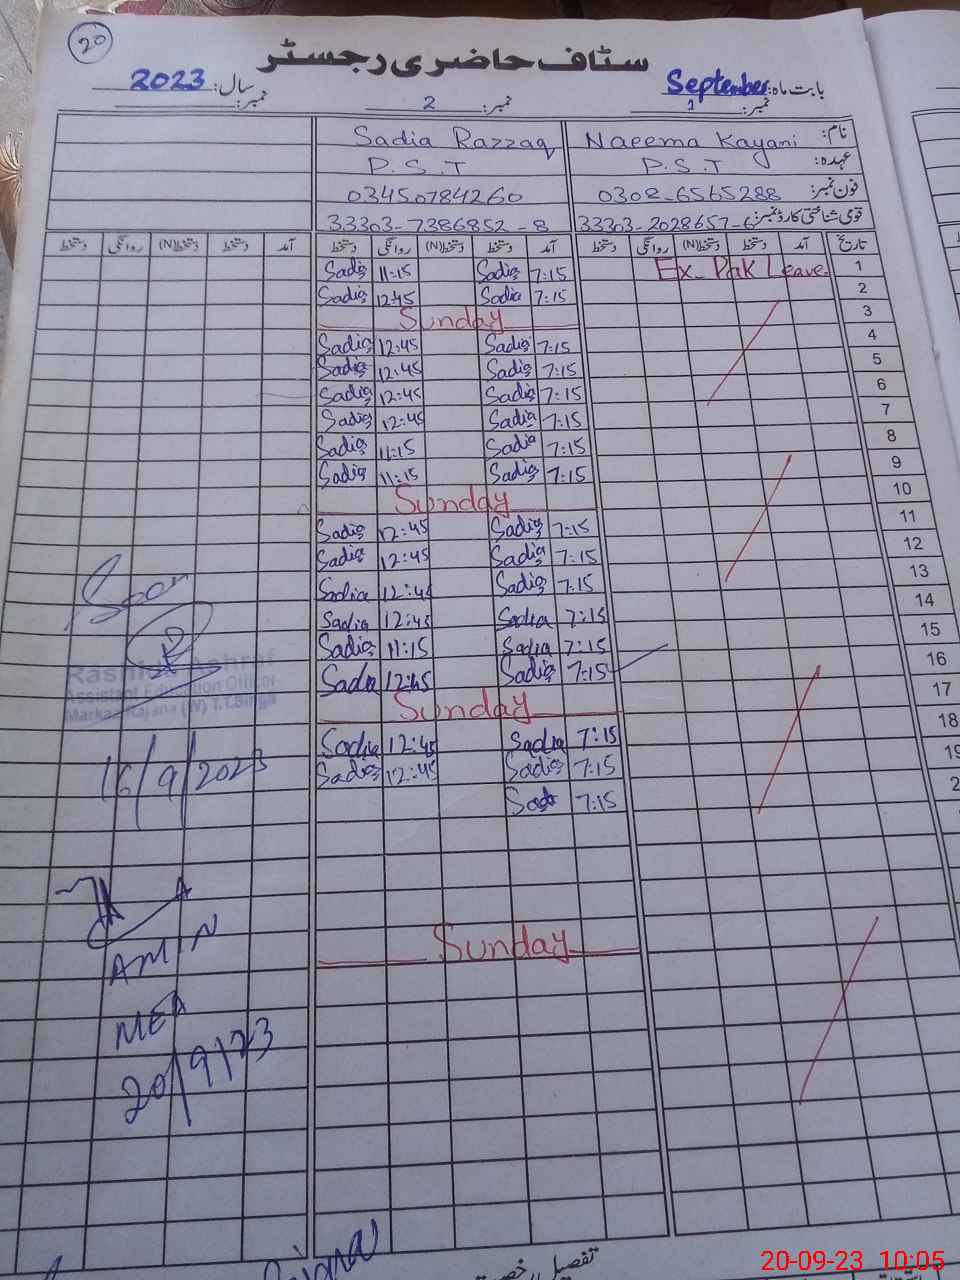 20
سٹاف حاضری رجسٹر
بابت ماہ: September سال: 2023
نمبر: 1 نمبر: 2 نمبر:
نام: Naeema Kayani Sadia Razzaq
عہدہ: P.S.T P.S.T
فون نمبر: 0308-6565288 03450784260
قومی شناختی کارڈ نمبر: 33303-2028657-6 33303-7386852-8
تاریخ آمد دستخط دستخط(N) روانگی دستخط آمد دستخط دستخط(N) روانگی دستخط آمد دستخط دستخط(N) روانگی دستخط
1 Ex-Pak Leave 7:15 Sadia 11:15 Sadia
2 7:15 Sadia 12:45 Sadia
3 Sunday
4 7:15 Sadia 12:45 Sadia
5 7:15 Sadia 12:45 Sadia
6 7:15 Sadia 12:45 Sadia
7 7:15 Sadia 12:45 Sadia
8 7:15 Sadia 11:15 Sadia
9 7:15 Sadia 11:15 Sadia
10 Sunday
11 7:15 Sadia 12:45 Sadia
12 7:15 Sadia 12:45 Sadia
13 7:15 Sadia 12:45 Sadia
14 7:15 Sadia 12:45 Sadia
15 7:15 Sadia 11:15 Sadia
16 7:15 Sadia 12:45 Sadia
17 Sunday
18 7:15 Sadia 12:45 Sadia
19 7:15 Sadia 12:45 Sadia
2 7:15 Sadia
Sunday
Seen
Rashid Ashraf
Assistant Education Officer
Markaz Rajana (W) T.T.Singh
16/9/2023
AMIN
MEA
20/9/23
تفصیل رخصت
20-09-23 10:05